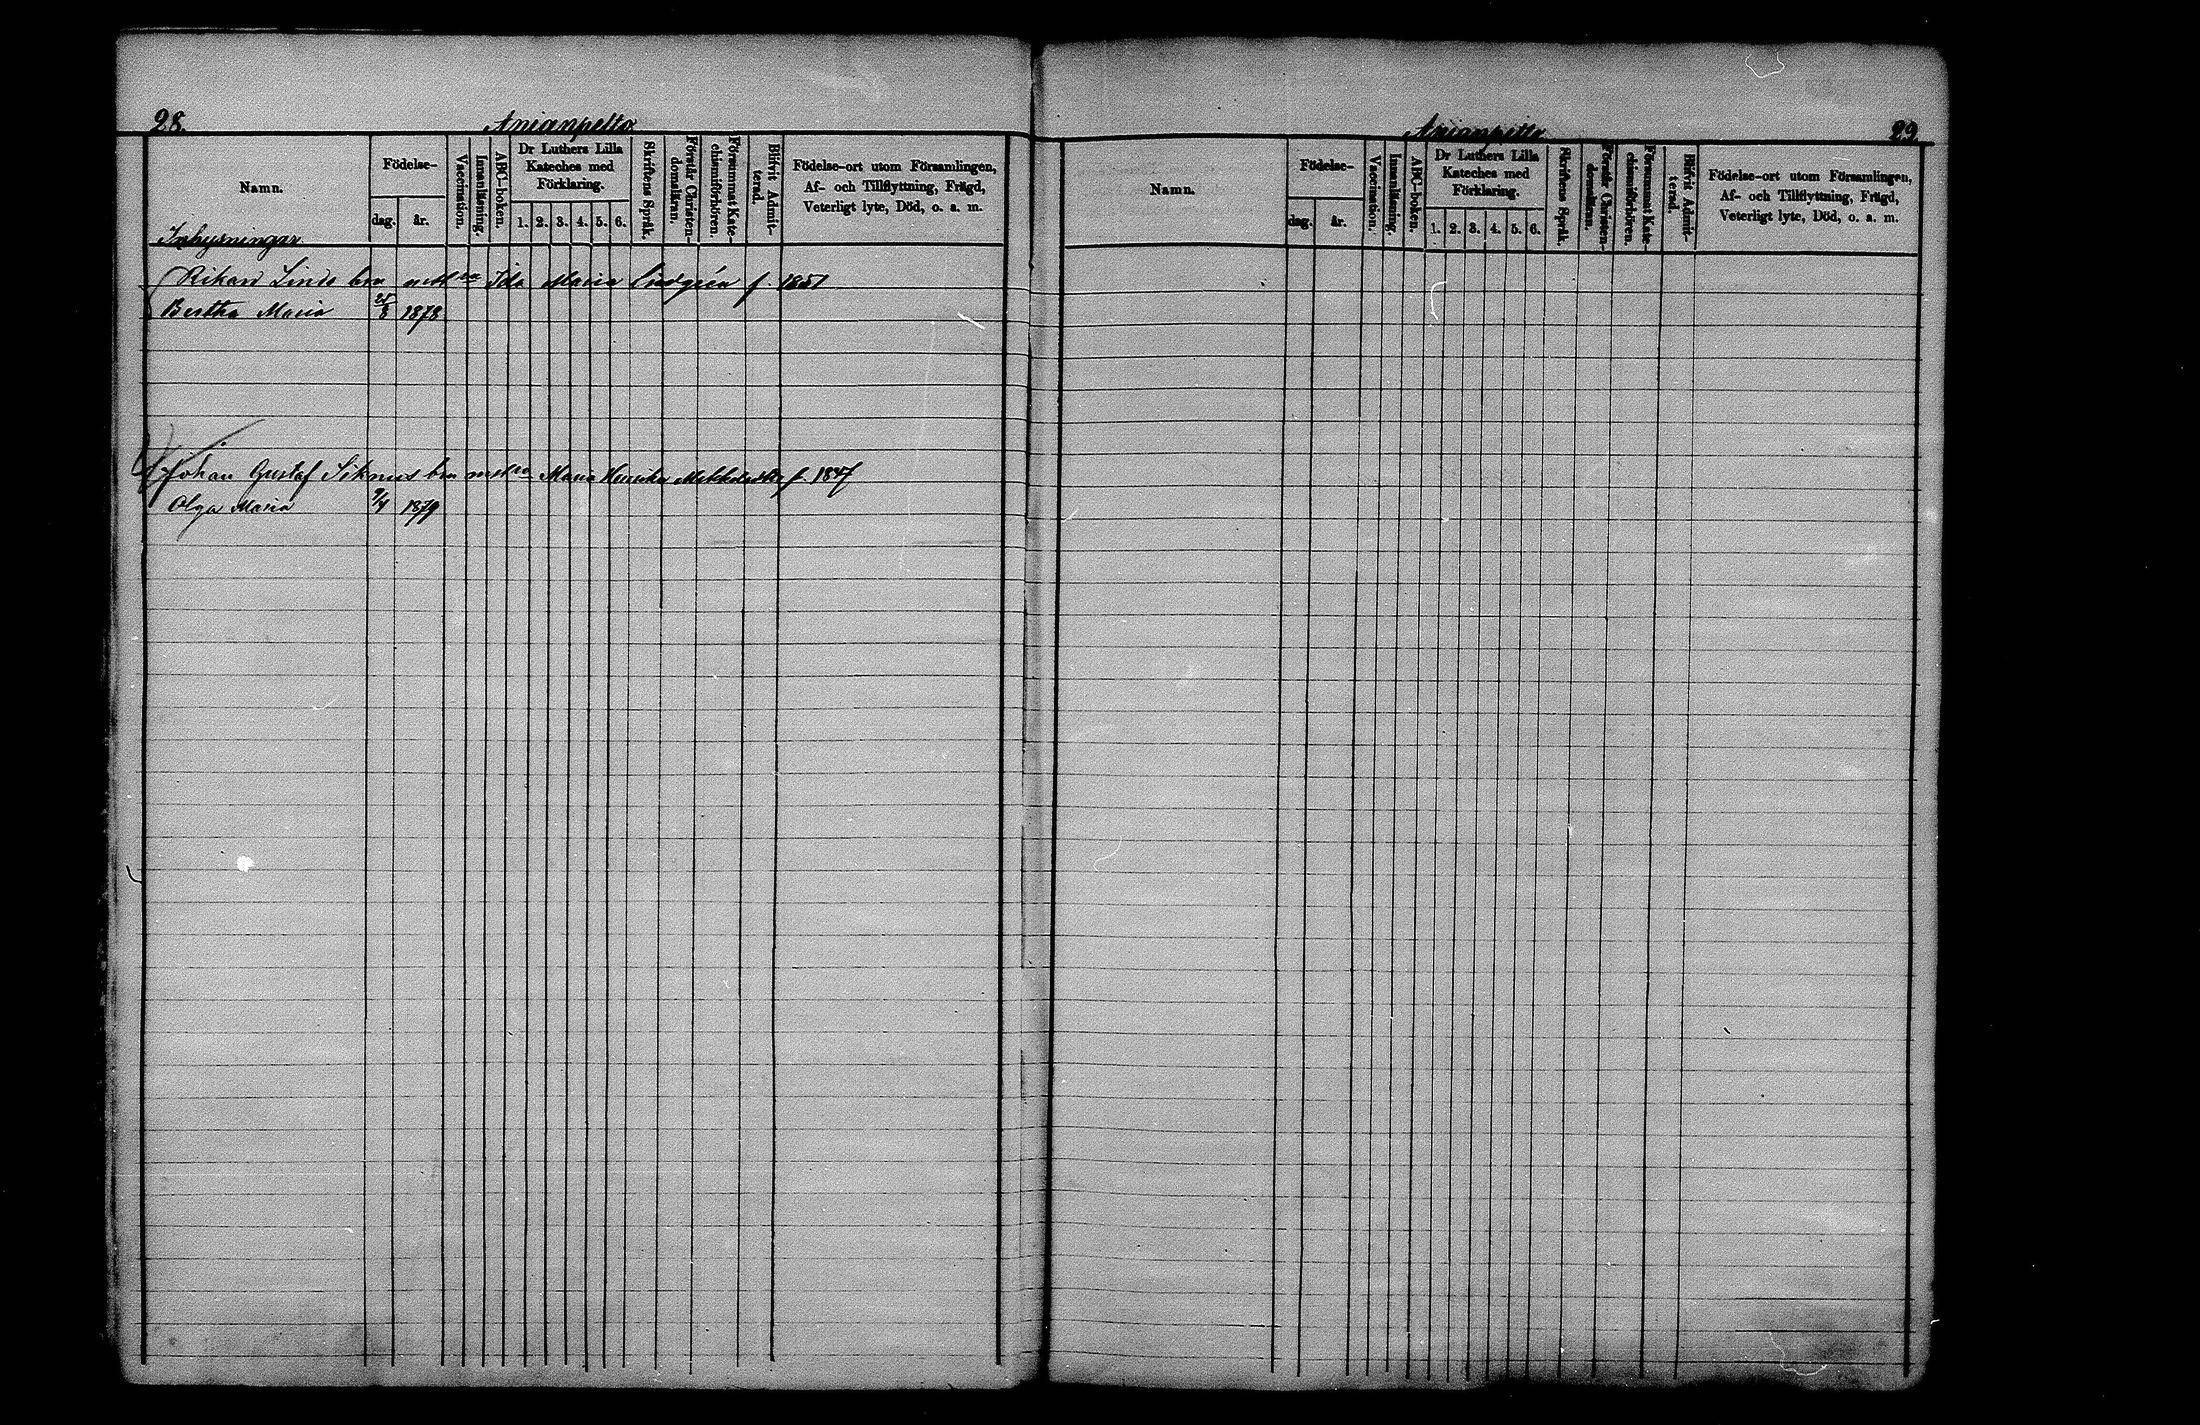 28.
Anianpelto
Namn.
Födelse-
dag.
år.
Vaccination.
Innanläsning.
ABC-boken.
Dr Luthers Lilla
Kateches med
Förklaring.
1. 2. 3. 4. 5. 6.
Skriftens Språk.
Förstår Christen-
domsläran.
Försummat Kate-
chismiförhören.
Blifvit Admit-
terad.
Födelse-ort utom Församlingen,
Af- och Tillflyttning, Frägd,
Veterligt lyte, Död, o. a. m.
Inhysningar
Rikard Lind Ida Maria Lindgrén f. 1851
Bertha Maria 1878
Johan Gustaf Maria Henrika f. 1847
Olga Maria 9/4 1879
Anianpelto
29.
Namn.
Födelse-
dag.
år.
Vaccination.
Innanläsning.
ABC-boken.
Dr Luthers Lilla
Kateches med
Förklaring.
1. 2. 3. 4. 5. 6.
Skriftens Språk.
Förstår Christen-
domsläran.
Försummat Kate-
chismiförhören.
Blifvit Admit-
terad.
Födelse-ort utom Församlingen,
Af- och Tillflyttning, Frägd,
Veterligt lyte, Död, o. a. m.